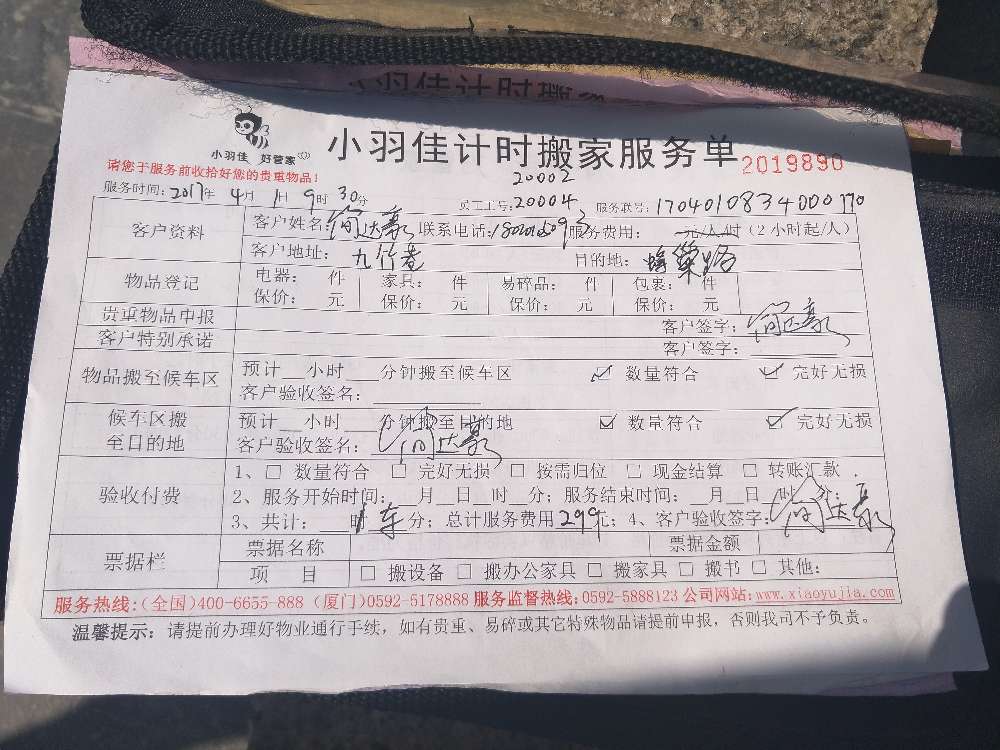 小羽佳计时搬
小羽佳 好管家
小羽佳计时搬家服务单
2019890
请您于服务前收拾好您的贵重物品！
20002
服务时间：2017年4月1日9时30分 员工工号：20004 服务联号：1704010834000170
客户资料 客户姓名： 达豪 联系电话： 服务费用： 元/人/时（2小时起/人）
客户地址： 九竹巷 目的地： 蜂巢路
物品登记 电器： 件 家具： 件 易碎品： 件 包裹： 件
保价： 元 保价： 元 保价： 元 保价： 元
贵重物品申报 客户签字： 达豪
客户特别承诺 客户签字：
物品搬至候车区 预计__小时__分钟搬至候车区 ☑ 数量符合 ☑ 完好无损
客户验收签名：
候车区搬至目的地 预计__小时__分钟搬至目的地 ☑ 数量符合 ☑ 完好无损
客户验收签名： 达豪
验收付费 1、□ 数量符合 □ 完好无损 □ 按需归位 □ 现金结算 □ 转账汇款．
2、服务开始时间：__月__日__时__分；服务结束时间：__月__日__时__分；
3、共计：__时1车分；总计服务费用299元；4、客户验收签字： 达豪
票据栏 票据名称 票据金额
项 目 □ 搬设备 □ 搬办公家具 □ 搬家具 □ 搬书 □ 其他：
服务热线：(全国)400-6655-888 (厦门)0592-5178888 服务监督热线：0592-5888123 公司网站：www.xiaoyujia.com
温馨提示：请提前办理好物业通行手续，如有贵重、易碎或其它特殊物品请提前申报，否则我司不予负责。